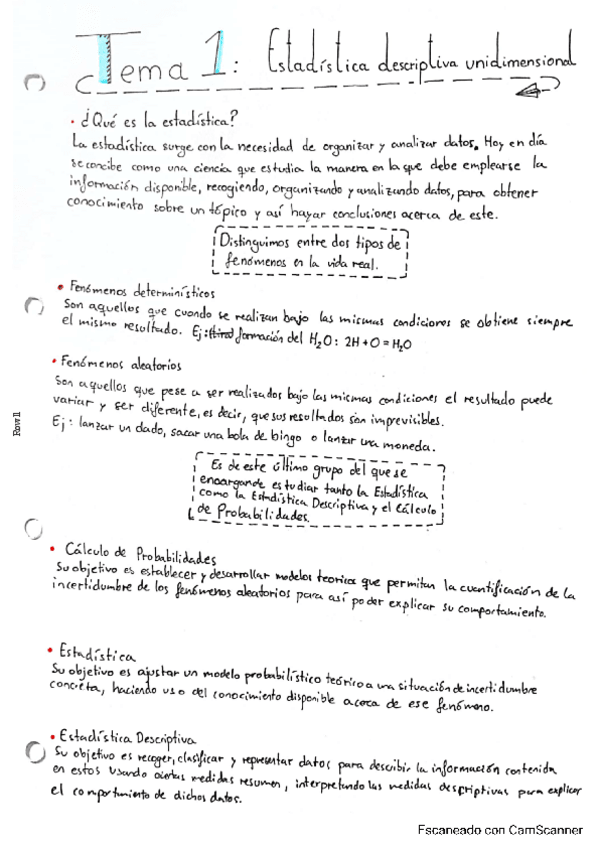 Tema 1: Estadística descriptiva unidimensional
• ¿Qué es la estadística?
La estadística surge con la necesidad de organizar y analizar datos. Hoy en día
se concibe como una ciencia que estudia la manera en la que debe emplearse la
información disponible, recogiendo, organizando y analizando datos, para obtener
conocimiento sobre un tópico y así hayar conclusiones acerca de este.
Distinguimos entre dos tipos de
fenómenos en la vida real.
• Fenómenos determinísticos
Son aquellos que cuando se realizan bajo las mismas condiciones se obtiene siempre
el mismo resultado. Ej: formación del H₂O: 2H + O = H₂O
• Fenómenos aleatorios
Son aquellos que pese a ser realizados bajo las mismas condiciones el resultado puede
variar y ser diferente, es decir, que sus resultados son imprevisibles.
Ej: lanzar un dado, sacar una bola de bingo o lanzar una moneda.
Es de este último grupo del que se
encargande estudiar tanto la Estadística
como la Estadística Descriptiva y el Cálculo
de Probabilidades.
• Cálculo de Probabilidades
Su objetivo es establecer y desarrollar modelos teoricos que permitan la cuantificación de la
incertidumbre de los fenómenos aleatorios para así poder explicar su comportamiento.
• Estadística
Su objetivo es ajustar un modelo probabilístico teórico a una situación de incertidumbre
concreta, haciendo uso del conocimiento disponible acerca de ese fenómeno.
• Estadística Descriptiva
Su objetivo es recoger, clasificar y representar datos para describir la información contenida
en estos usando ciertas medidas resumen, interpretando las medidas descriptivas para explicar
el comportamiento de dichos datos.
Escaneado con CamScanner